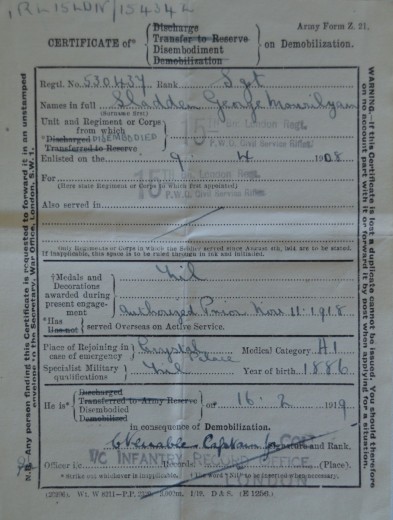 Army Form Z. 21.
CERTIFICATE of* Discharge Transfer to Reserve Disembodiment Demobilization on Demobilization.
Regtl. No. 530437 Rank Sgt
Names in full Shadden George
(Surname first)
Unit and Regiment or Corps from which
15th Bn London Regt.
P.W.O. Civil Service Rifles
*Discharged DISEMBODIED
Transferred to Reserve
Enlisted on the 9. 4 1908.
For 15th Bn London Regt.
P.W.O. Civil Service Rifles
(Here state Regiment or Corps to which first appointed)
Also served in
Only Regiments or Corps in which the Soldier served since August 4th, 1914 are to be stated.
If inapplicable, this space is to be ruled through in ink and initialled.
†Medals and Decorations awarded during present engagement Nil
Authorized Prior Nov. 11. 1918
*Has Has not served Overseas on Active Service.
Place of Rejoining in case of emergency Crystal Palace Medical Category A1
Specialist Military qualifications Nil Year of birth 1886
He is* Discharged Transferred to Army Reserve Disembodied Demobilized on 16. 2 1919
in consequence of Demobilization.
Captain Signature and Rank.
Officer i/c Records (Place).
I/C INFANTRY RECORD OFFICE
LONDON
* Strike out whichever is inapplicable. † The word "Nil" to be inserted when necessary.
WARNING.—If this Certificate is lost a duplicate cannot be issued. You should therefore on no account part with it or forward it by post when applying for a situation.
N.B.—Any person finding this Certificate is requested to forward it in an unstamped envelope to the Secretary, War Office, London, S.W. 1.